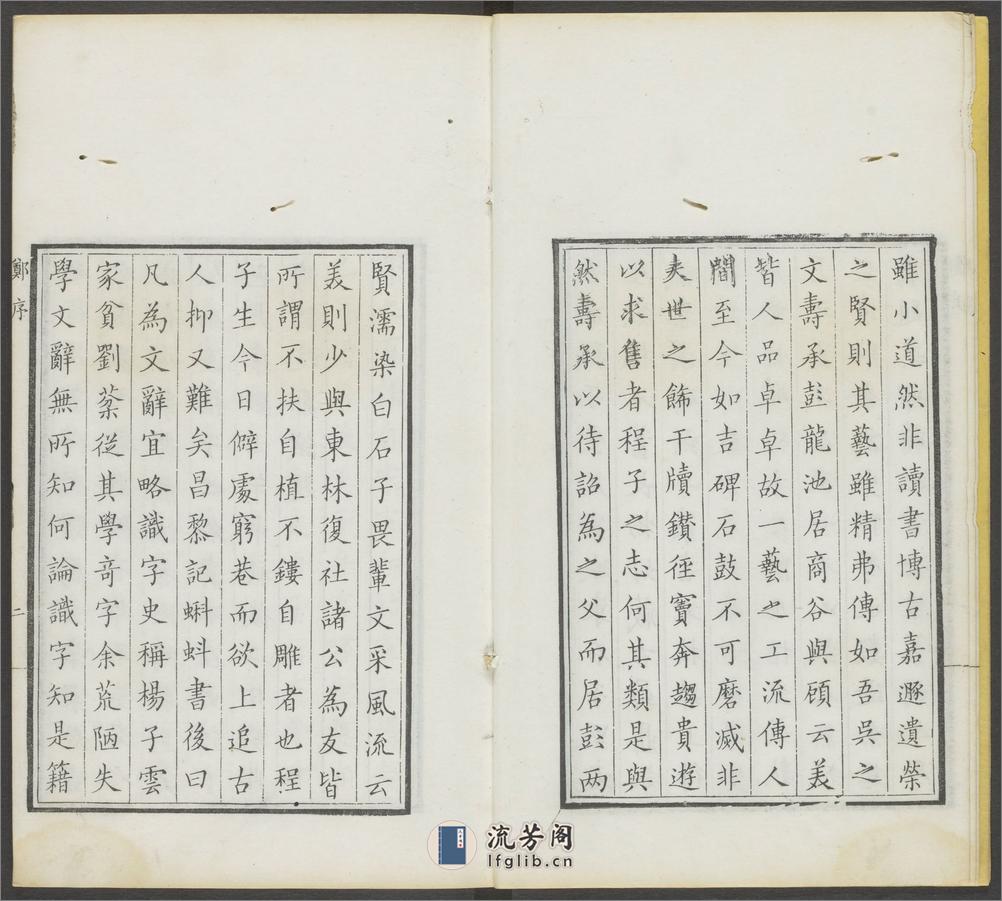 雖小道然非讀書博古嘉遯遺榮
之賢則其藝雖精弗傳如吾吳之
文壽承彭龍池居商谷與顧云美
皆人品卓卓故一藝之工流傳人
間至今如吉碑石鼓不可磨滅非
夫世之飾干牘鑽徑竇奔趨貴遊
以求售者程子之志何其類是與
然壽承以待詔為之父而居彭兩
賢濡染白石子畏輩文采風流云
美則少與東林復社諸公為友皆
所謂不扶自植不鏤自雕者也程
子生今日僻處窮巷而欲上追古
人抑又難矣昌黎記蝌蚪書後曰
凡為文辭宜略識字史稱楊子雲
家貧劉棻從其學奇字余荒陋失
學文辭無所知何論識字知是籍
鄭序
二
流芳阁
lfglib.cn